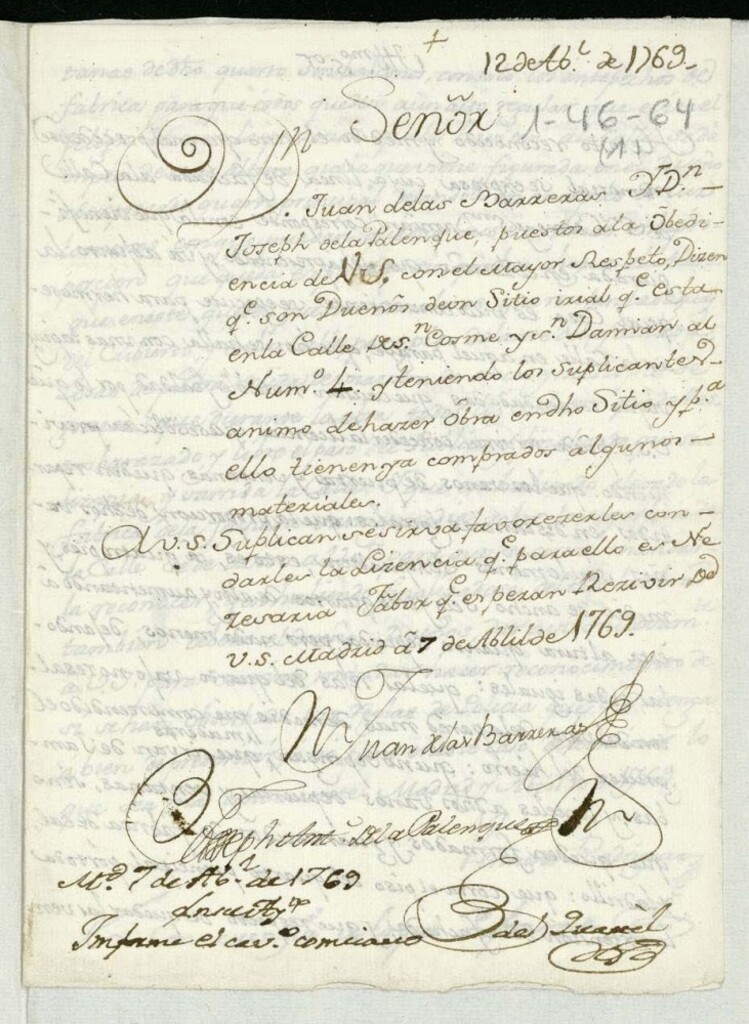 12 de Ab.l de 1769.
Señor
1-46-64
(11)
Dn. Juan delas Barreras, y Dn.
Joseph dela Palenque, puestos ala Obedi-
encia de V.S. con el Mayor Respeto, Dizen
q.e son Dueños de un Sitio irial q.e esta
en la Calle de Sn. Cosme y Sn. Damian al
Num.o 4 y teniendo los suplicantes
animo de hazer Obra en dho Sitio y p.a
ello tienen ya comprados algunos
materiales.
A V.S. Suplican se sirva favorezerles con
darles la Lizencia q.e para ello es Ne
zesaria fabor q.e esperan Rezivir De
V.S. Madrid â 7 de Ablil de 1769.
Juan delas Barreras
Joseph Ant.o dela Palenque
M.d 7 de Ab.l de 1769
Informe el cav.o comisario